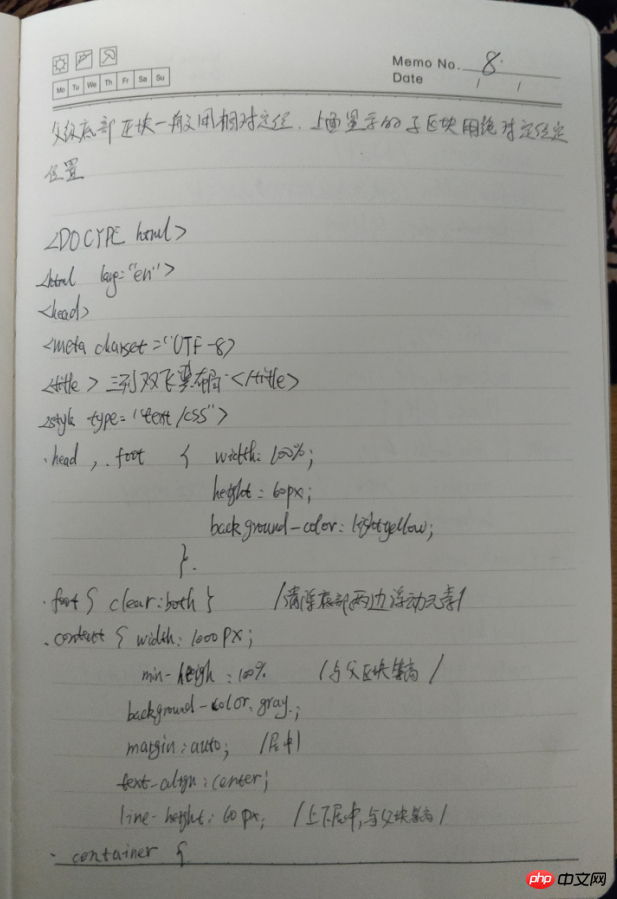 Memo No. 8.
Mo Tu We Th Fr Sa Su
Date / /
父级底部区块一般用相对定位、上面显示的子区块用绝对定位定
位置
<DOCTYPE html>
<html lang="en">
<head>
<meta charset="UTF-8>
<title>三列双飞翼布局</title>
<style type="text/css">
.head , .foot { width: 100%;
height: 60px;
background-color: lightyellow;
}.
.foot { clear:both } /清除底部两边浮动元素/
.content { width: 1000px;
min-heigh : 100% /与父区块等高/
background-color: gray;
margin: auto; /居中/
text-align: center;
line-height: 60px; /上下居中,与父块等高/
. container {
php 中文网